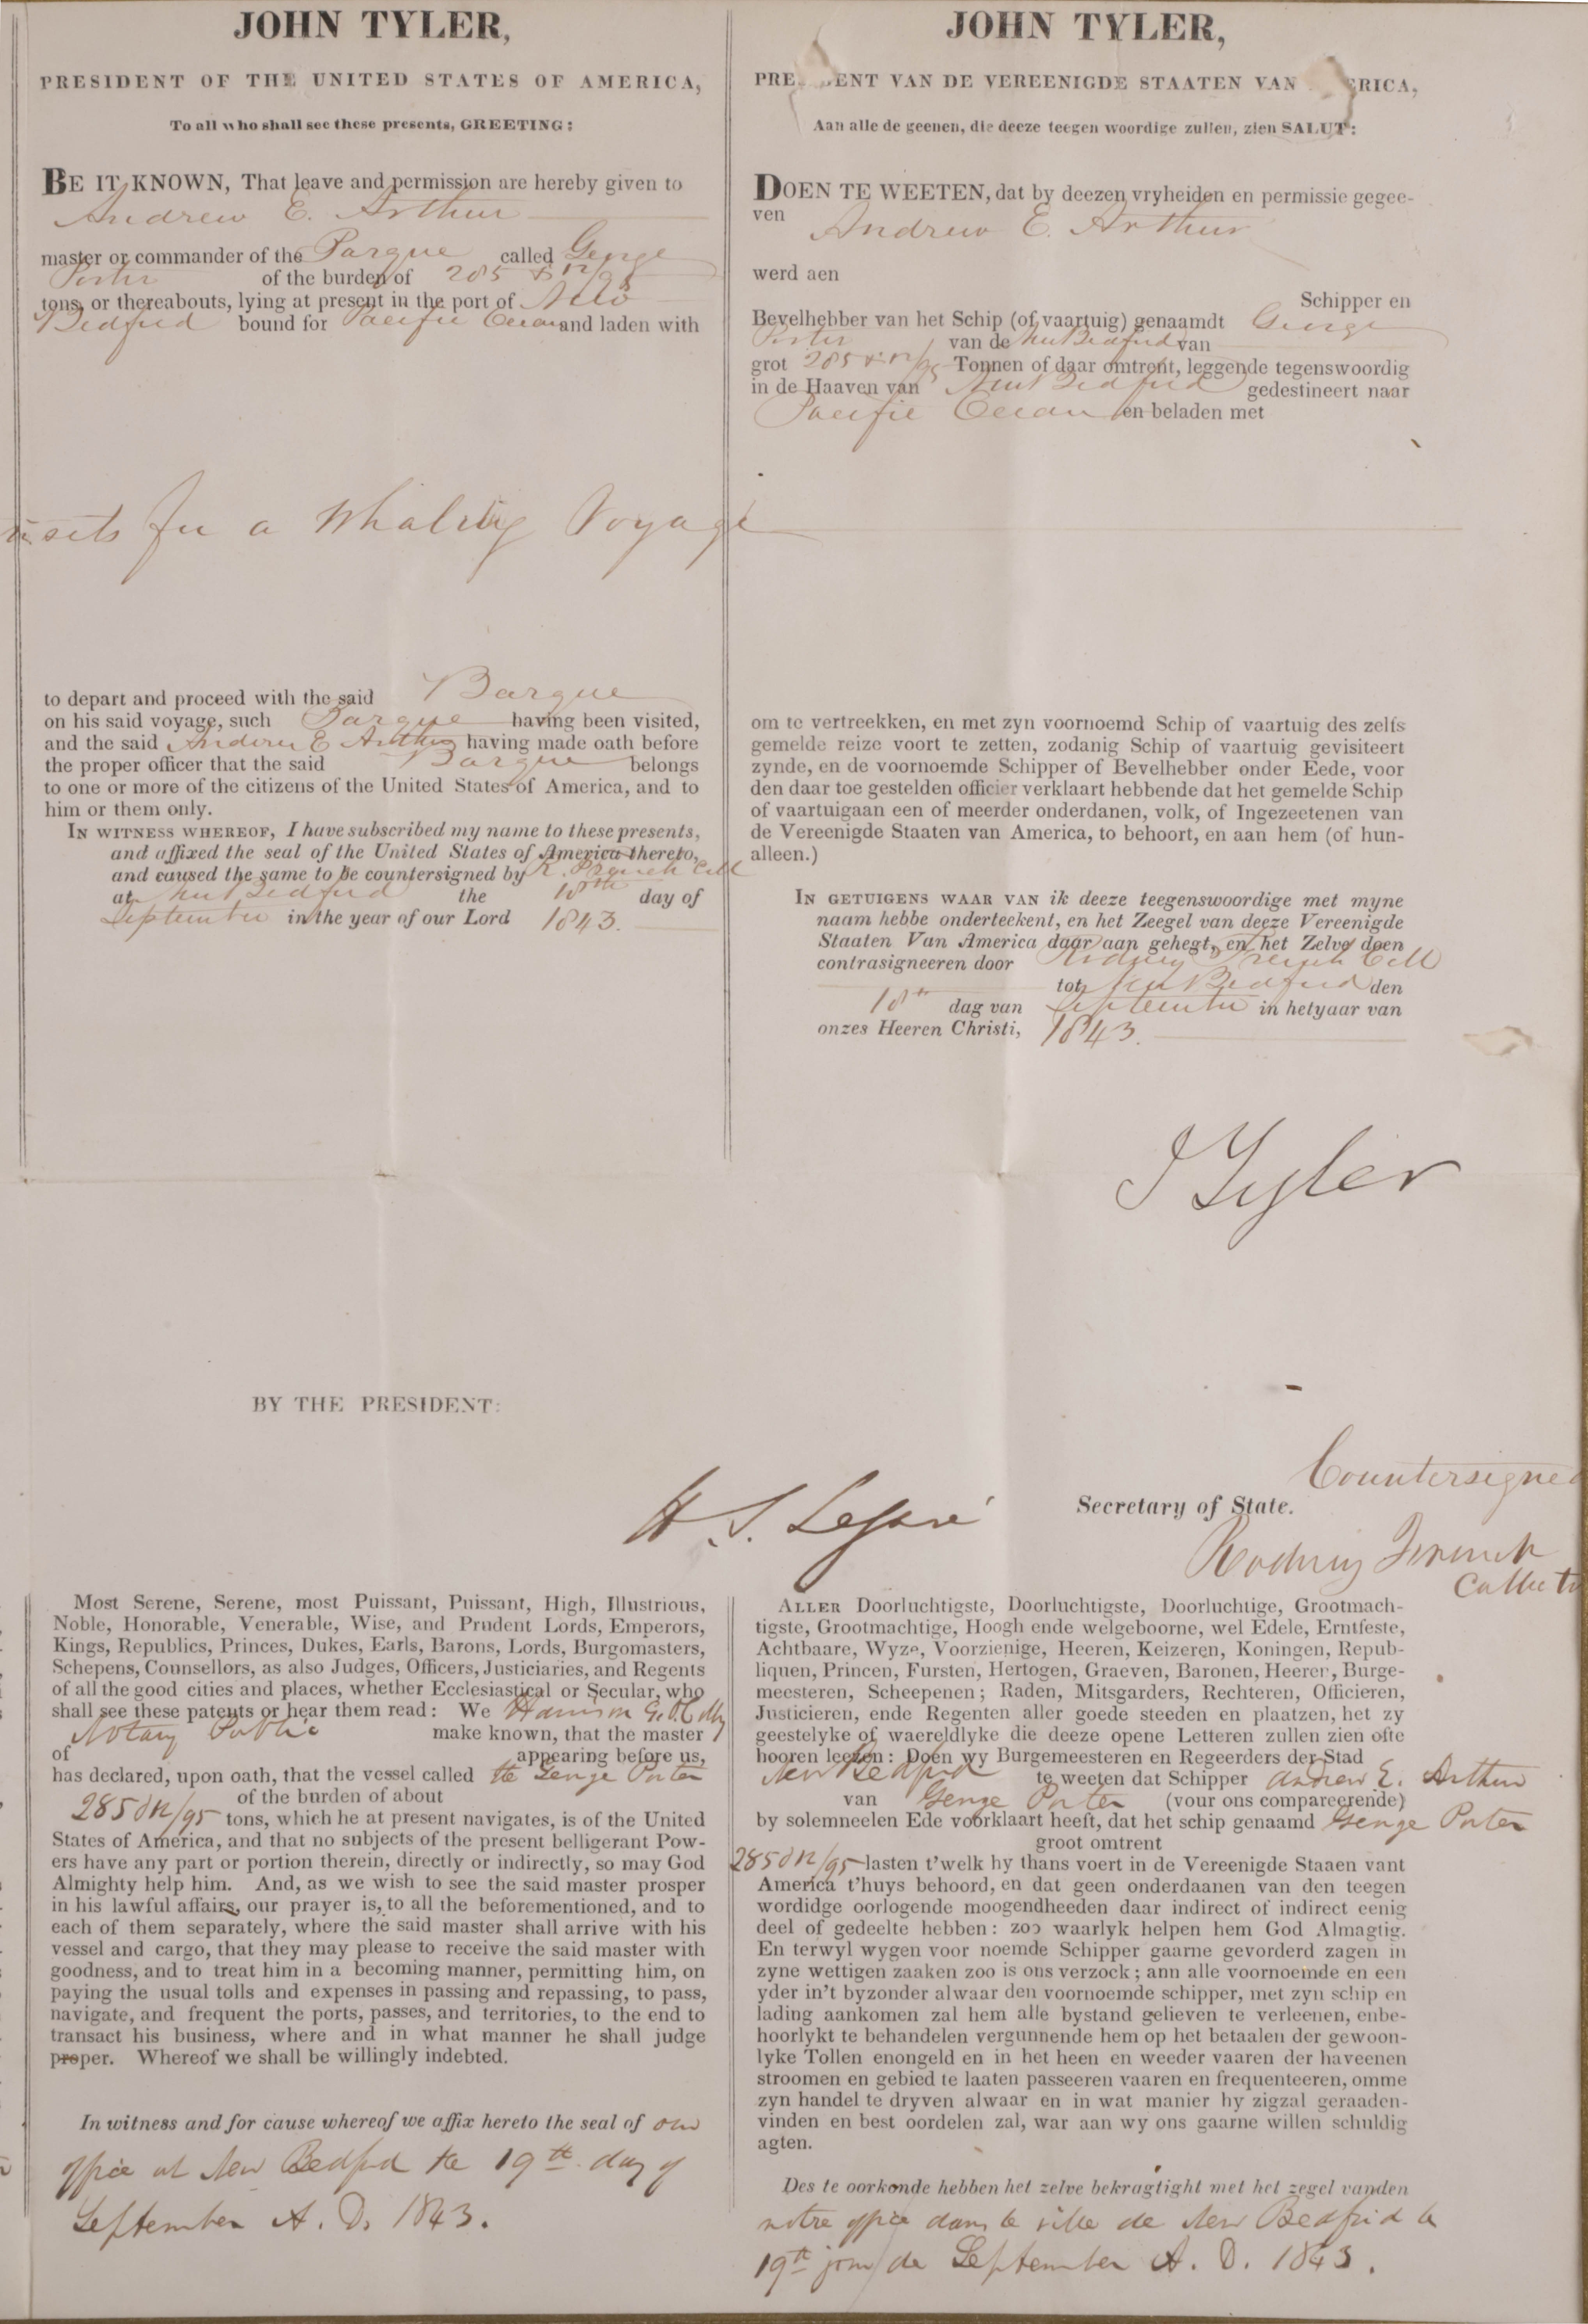 JOHN TYLER,
PRESIDENT OF THE UNITED STATES OF AMERICA,
To all who shall see these presents, GREETING:
BE IT KNOWN, That leave and permission are hereby given to
Andrew E. Arthur
master or commander of the Barque called George
Porter of the burden of 285 & 12/95
tons, or thereabouts, lying at present in the port of New
Bedford bound for Pacific Ocean and laden with
for a Whaling Voyage
to depart and proceed with the said Barque
on his said voyage, such Barque having been visited,
and the said Andrew E Arthur having made oath before
the proper officer that the said Barque belongs
to one or more of the citizens of the United States of America, and to
him or them only.
IN WITNESS WHEREOF, I have subscribed my name to these presents,
and affixed the seal of the United States of America thereto,
and caused the same to be countersigned by R. French Coll
at New Bedford the 18th day of
September in the year of our Lord 1843.
JOHN TYLER,
PRE ENT VAN DE VEREENIGDE STAATEN VAN ERICA,
Aan alle de geenen, die deeze teegen woordige zullen, zien SALUT:
DOEN TE WEETEN, dat by deezen vryheiden en permissie gegee-
ven Andrew E. Arthur
werd aen
Schipper en
Bevelhebber van het Schip (of vaartuig) genaamdt George
Porter van de New Bedford van
grot 285 & 12/95 Tonnen of daar omtrent, leggende tegenswoordig
in de Haaven van New Bedford gedestineert naar
Pacific Ocean en beladen met
om te vertreekken, en met zyn voornoemd Schip of vaartuig des zelfs
gemelde reize voort te zetten, zodanig Schip of vaartuig gevisiteert
zynde, en de voornoemde Schipper of Bevelhebber onder Eede, voor
den daar toe gestelden officier verklaart hebbende dat het gemelde Schip
of vaartuigaan een of meerder onderdanen, volk, of Ingezeetenen van
de Vereenigde Staaten van America, to behoort, en aan hem (of hun-
alleen.)
IN GETUIGENS WAAR VAN ik deeze teegenswoordige met myne
naam hebbe onderteekent, en het Zeegel van deeze Vereenigde
Staaten Van America daar aan gehegt, en het Zelve doen
contrasigneeren door Rodney French Coll
tot New Bedford den
18th dag van September in hetyaar van
onzes Heeren Christi, 1843.
J Tyler
BY THE PRESIDENT:
H. S. Legaré
Secretary of State.
Countersigned
Rodney French
Collector
Most Serene, Serene, most Puissant, Puissant, High, Illustrious,
Noble, Honorable, Venerable, Wise, and Prudent Lords, Emperors,
Kings, Republics, Princes, Dukes, Earls, Barons, Lords, Burgomasters,
Schepens, Counsellors, as also Judges, Officers, Justiciaries, and Regents
of all the good cities and places, whether Ecclesiastical or Secular, who
shall see these patents or hear them read: We Harrison G. O.
Notary Public make known, that the master
of appearing before us,
has declared, upon oath, that the vessel called the George Porter
of the burden of about
285 & 12/95 tons, which he at present navigates, is of the United
States of America, and that no subjects of the present belligerant Pow-
ers have any part or portion therein, directly or indirectly, so may God
Almighty help him. And, as we wish to see the said master prosper
in his lawful affairs, our prayer is, to all the beforementioned, and to
each of them separately, where the said master shall arrive with his
vessel and cargo, that they may please to receive the said master with
goodness, and to treat him in a becoming manner, permitting him, on
paying the usual tolls and expenses in passing and repassing, to pass,
navigate, and frequent the ports, passes, and territories, to the end to
transact his business, where and in what manner he shall judge
proper. Whereof we shall be willingly indebted.
In witness and for cause whereof we affix hereto the seal of our
office at New Bedford the 19th day of
September A. D. 1843.
ALLER Doorluchtigste, Doorluchtigste, Doorluchtige, Grootmach-
tigste, Grootmachtige, Hoogh ende welgeboorne, wel Edele, Erntfeste,
Achtbaare, Wyze, Voorzienige, Heeren, Keizeren, Koningen, Repub-
liquen, Princen, Fursten, Hertogen, Graeven, Baronen, Heeren, Burge-
meesteren, Scheepenen; Raden, Mitsgarders, Rechteren, Officieren,
Justicieren, ende Regenten aller goede steeden en plaatzen, het zy
geestelyke of waereldlyke die deeze opene Letteren zullen zien ofte
hooren leezen: Doen wy Burgemeesteren en Regeerders der Stad
New Bedford te weeten dat Schipper Andrew E. Arthur
van George Porter (vour ons compareerende)
by solemneelen Ede voorklaart heeft, dat het schip genaamd George Porter
groot omtrent
285 & 12/95 lasten t'welk hy thans voert in de Vereenigde Staaen vant
America t'huys behoord, en dat geen onderdaanen van den teegen
wordidge oorlogende moogendheeden daar indirect of indirect eenig
deel of gedeelte hebben: zoo waarlyk helpen hem God Almagtig.
En terwyl wygen voor noemde Schipper gaarne gevorderd zagen in
zyne wettigen zaaken zoo is ons verzock; ann alle voornoemde en een
yder in't byzonder alwaar den voornoemde schipper, met zyn schip en
lading aankomen zal hem alle bystand gelieven te verleenen, enbe-
hoorlykt te behandelen vergunnende hem op het betaalen der gewoon-
lyke Tollen enongeld en in het heen en weeder vaaren der haveenen
stroomen en gebied te laaten passeeren vaaren en frequenteeren, omme
zyn handel te dryven alwaar en in wat manier hy zigzal geraaden-
vinden en best oordelen zal, war aan wy ons gaarne willen schuldig
agten.
Des te oorkonde hebben het zelve bekragtight met het zegel vanden
notre office dans la ville de New Bedford le
19th jour de September A. D. 1843.